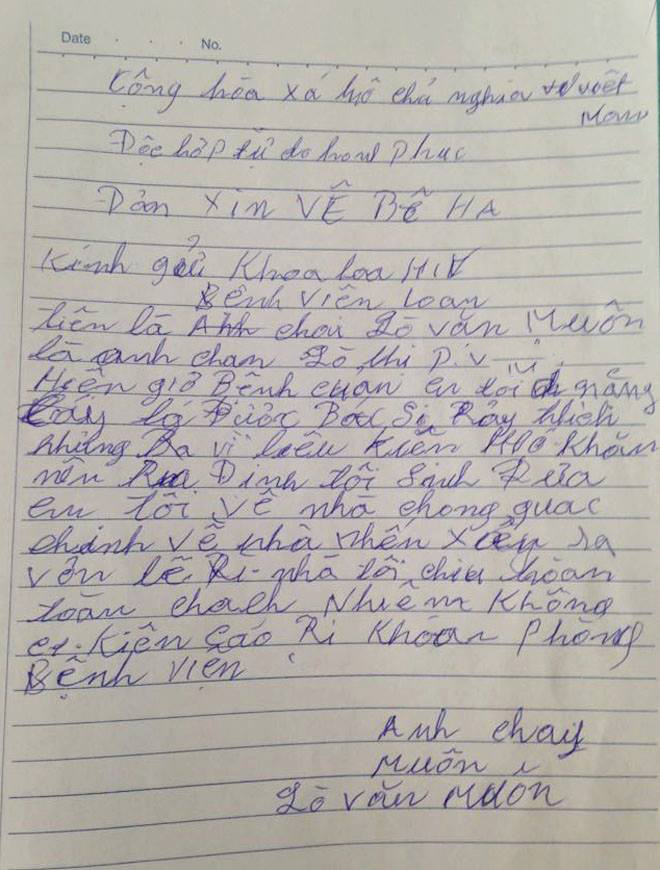 Date . . . No.
Cộng hòa xá hộ chủ nghĩa việt
Mam
Độc hập tự do hanh Phuc
Dản XiN VỄ BỄ HA
Kính gửi Khoa loa HIV
Bênh Viên Loan
tiên là Anh chai Lò văn Muôn
là anh chan Lò thi P. V
Hiện giờ Bênh cuan em tôi năng
lấy lá Được Bac Sĩ Rảy thich
nhửng Ra vì liêu Kiên HOO Khăn
nên Rua Đinh tôi Sinh Đưa
em tôi vê nhà chong quac
chinh vê nhà nhên xẩy ra
vớn lê Ri nhà tôi chiu hòan
toàn chach Nhiêm Không
co Kiên Cáo Ri Khóan Phòng
Bệnh viên
Anh chay
Muôn
Lò văn Muôn